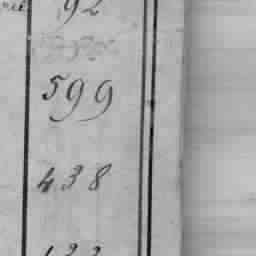 92
599
438